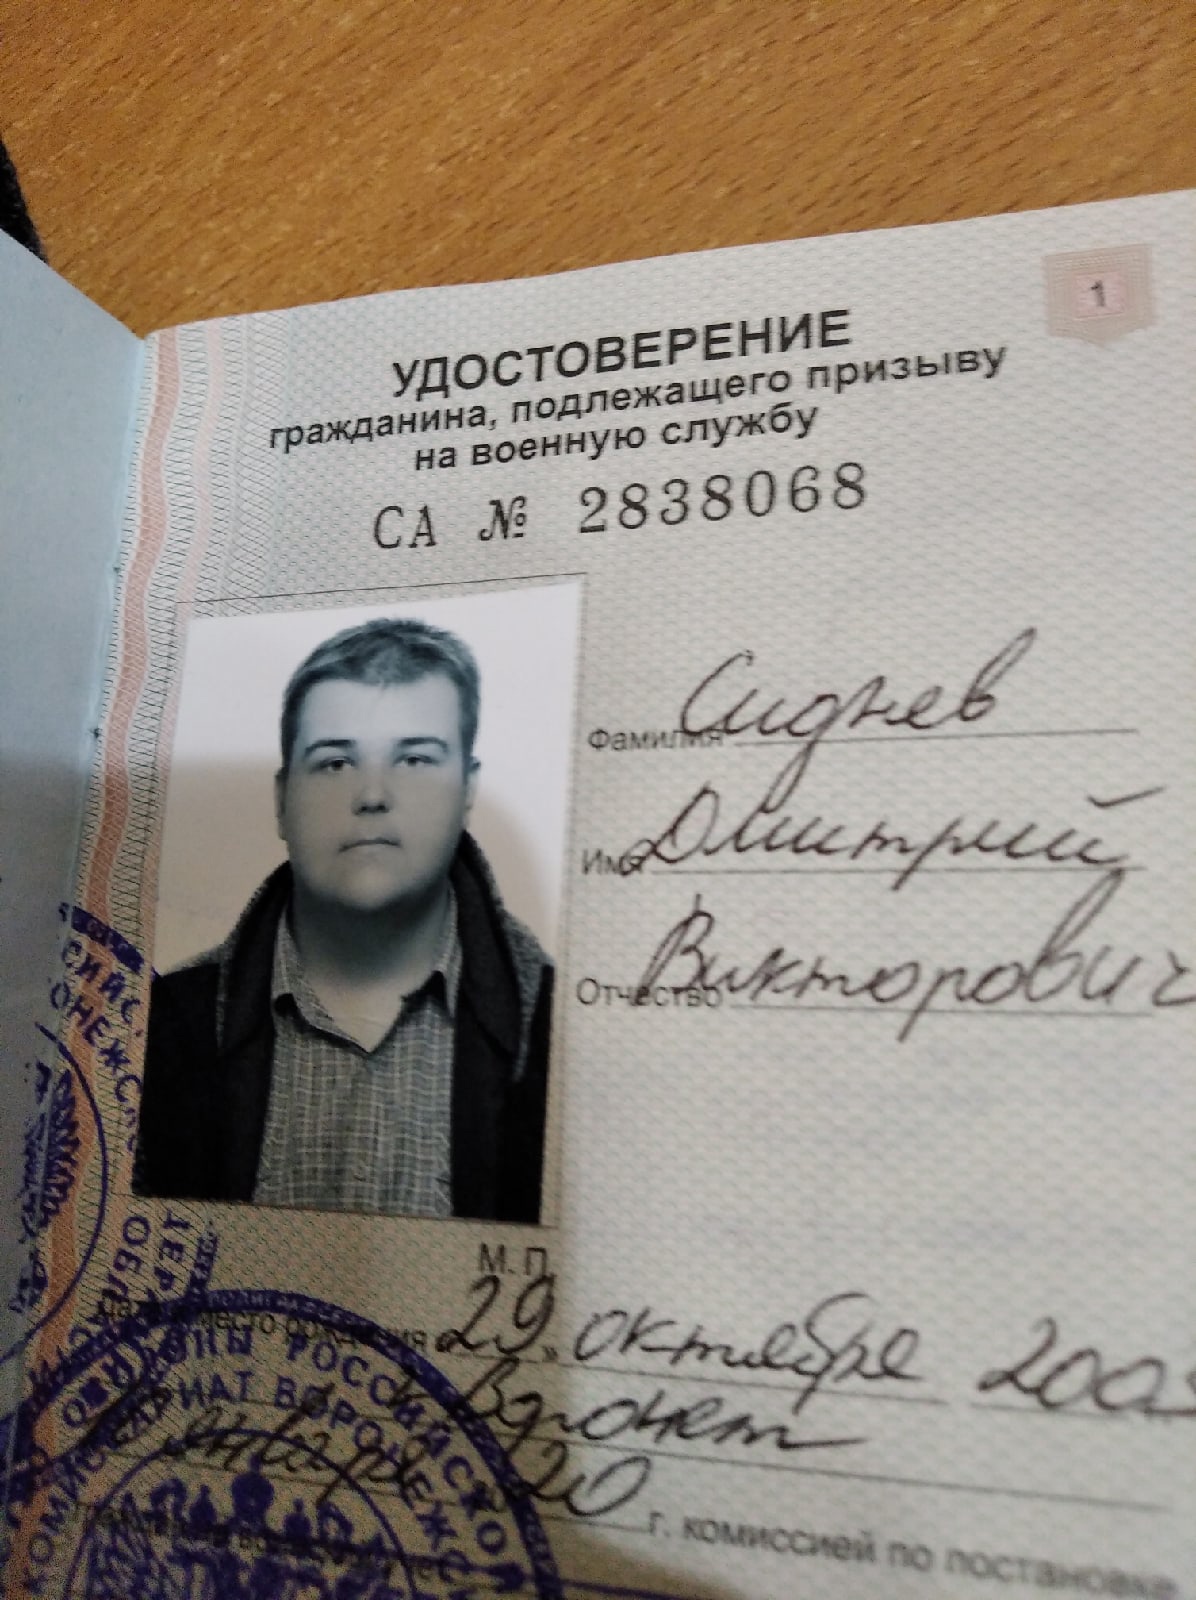 1
УДОСТОВЕРЕНИЕ
гражданина, подлежащего призыву
на военную службу
СА № 2838068
Фамилия Сиднев
Имя Дмитрий
Отчество Викторович
М. П.
место рождения 29 октября
Воронеж
января 20 г. комиссией по постановке
РОССИЙСКОЙ